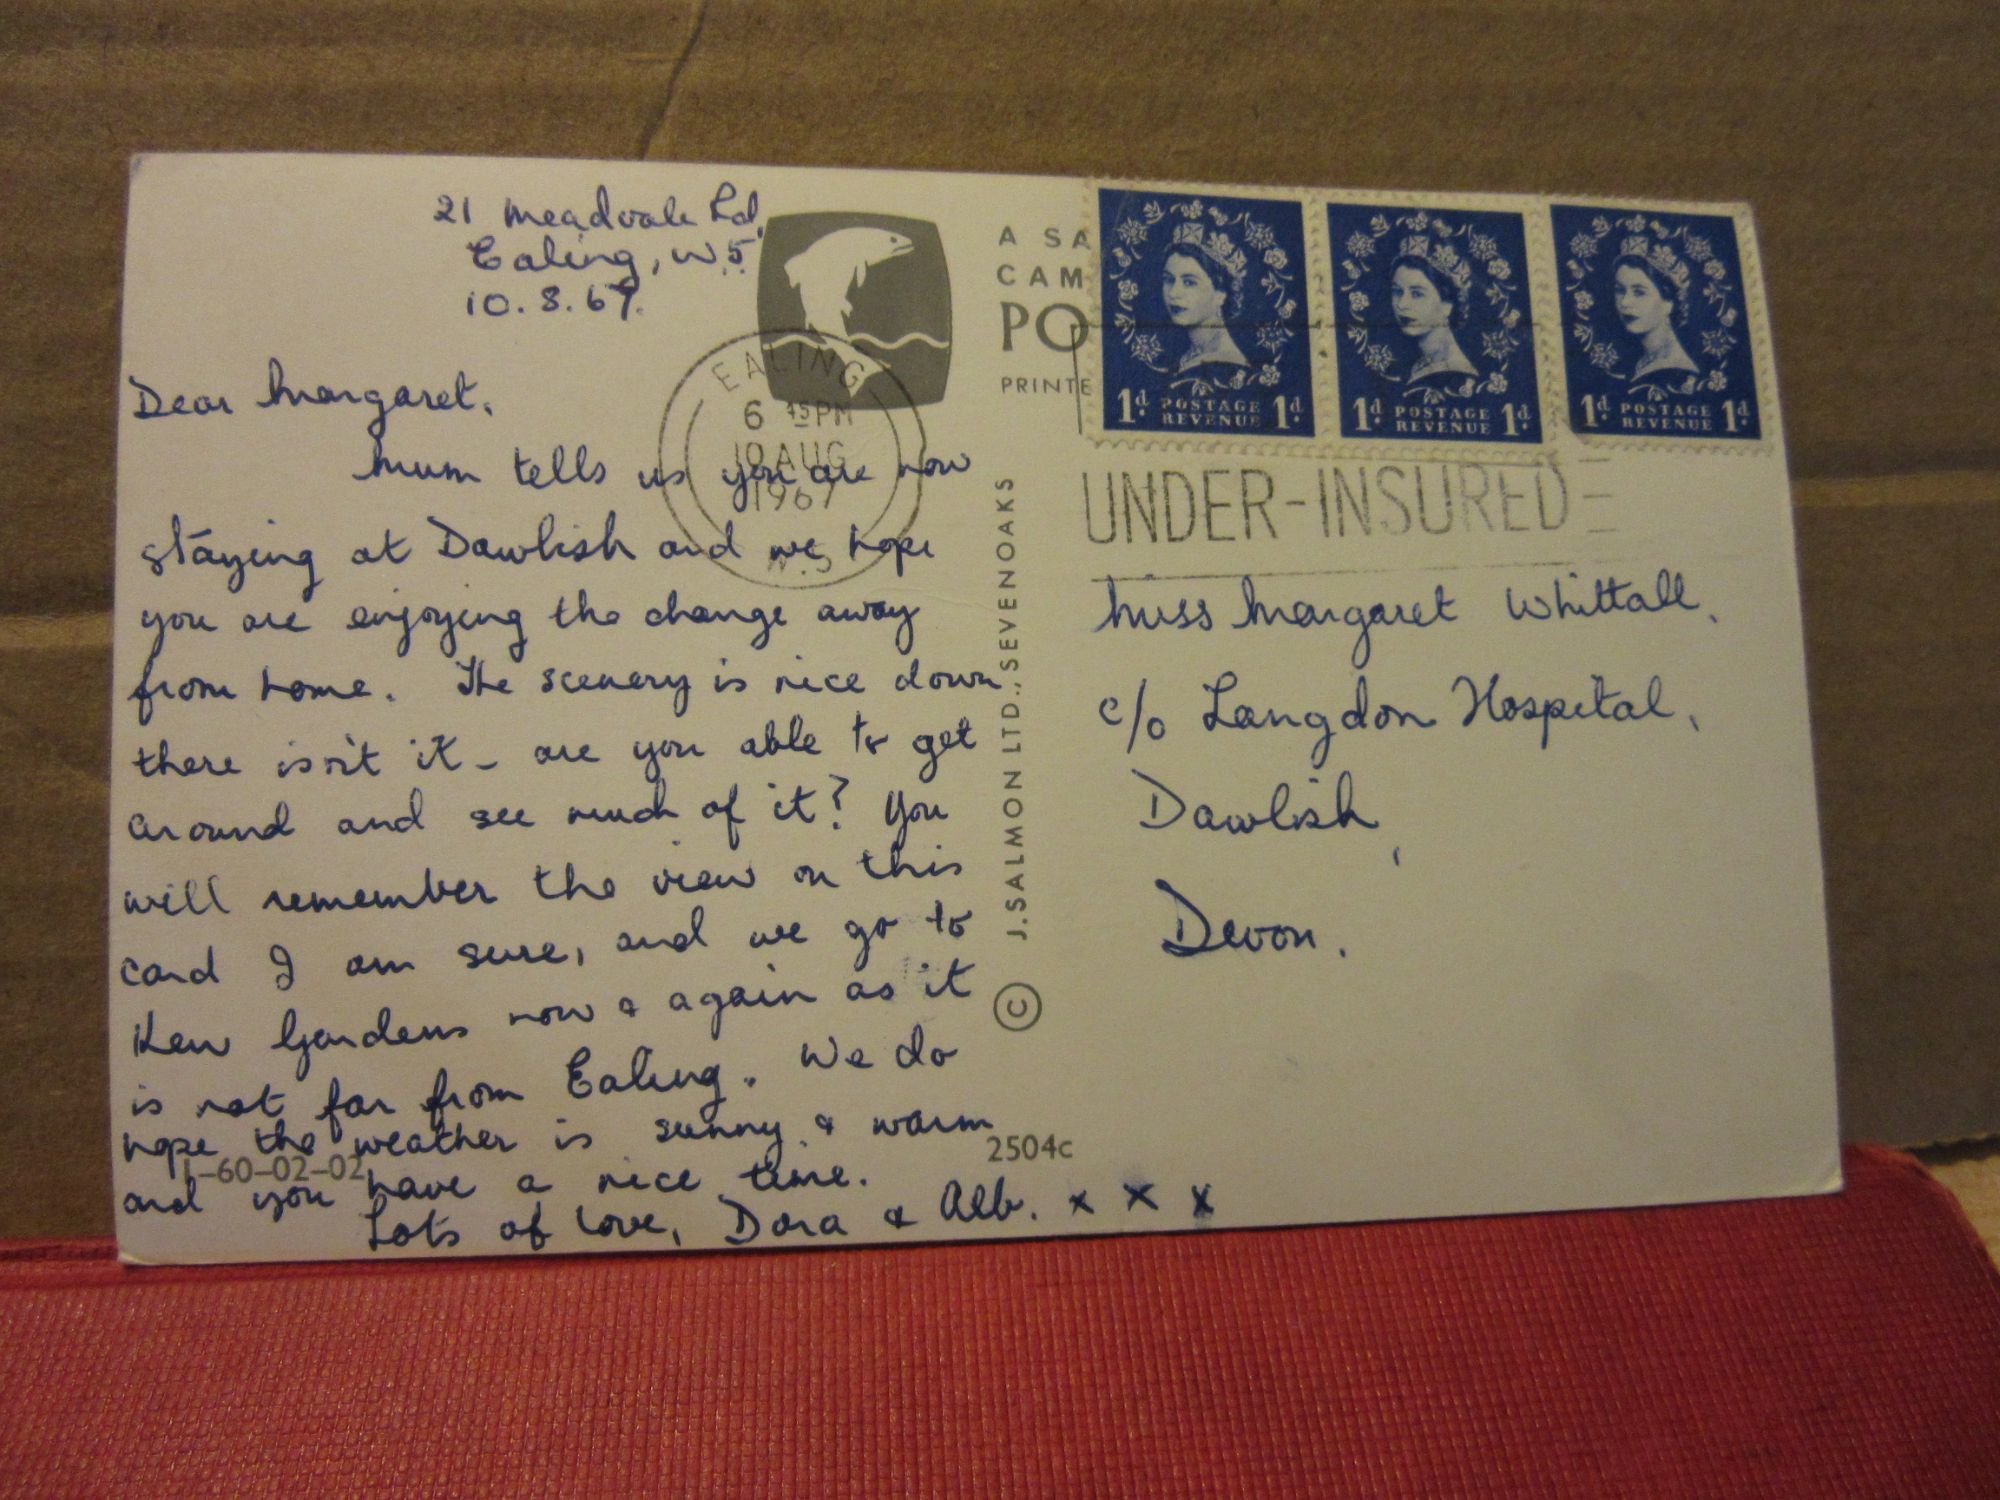 21 Meadvale Rd,
Ealing, W.5
10.8.67.
Dear Margaret,
Mum tells us you are now
staying at Dawlish and we hope
you are enjoying the change away
from home. The scenery is nice down
there isn't it - are you able to get
around and see much of it? You
will remember the view on this
card I am sure, and we go to
Kew Gardens now & again as it
is not far from Ealing. We do
hope the weather is sunny & warm
and you have a nice time.
Lots of love, Dora & Alb. x x x
1-60-02-02
2504c
EALING
6 45 PM
10 AUG
1967
W.5
A SA
CAM
PO
PRINTE
© J. SALMON LTD., SEVENOAKS
1d. POSTAGE REVENUE 1d.
1d. POSTAGE REVENUE 1d.
1d. POSTAGE REVENUE 1d.
UNDER-INSURED
Miss Margaret Whittall,
c/o Langdon Hospital,
Dawlish,
Devon.